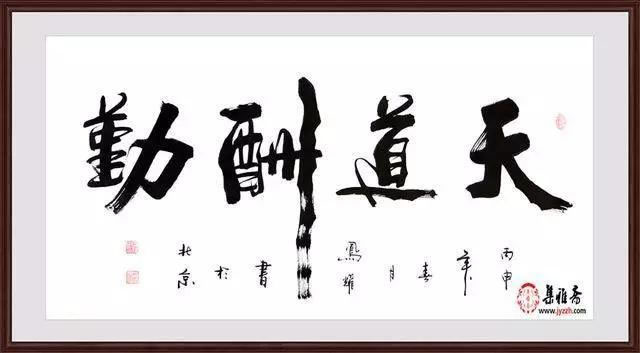 天道酬勤
丙申年春月鳳耀書於北京
集雅斋
www.jyzzh.com